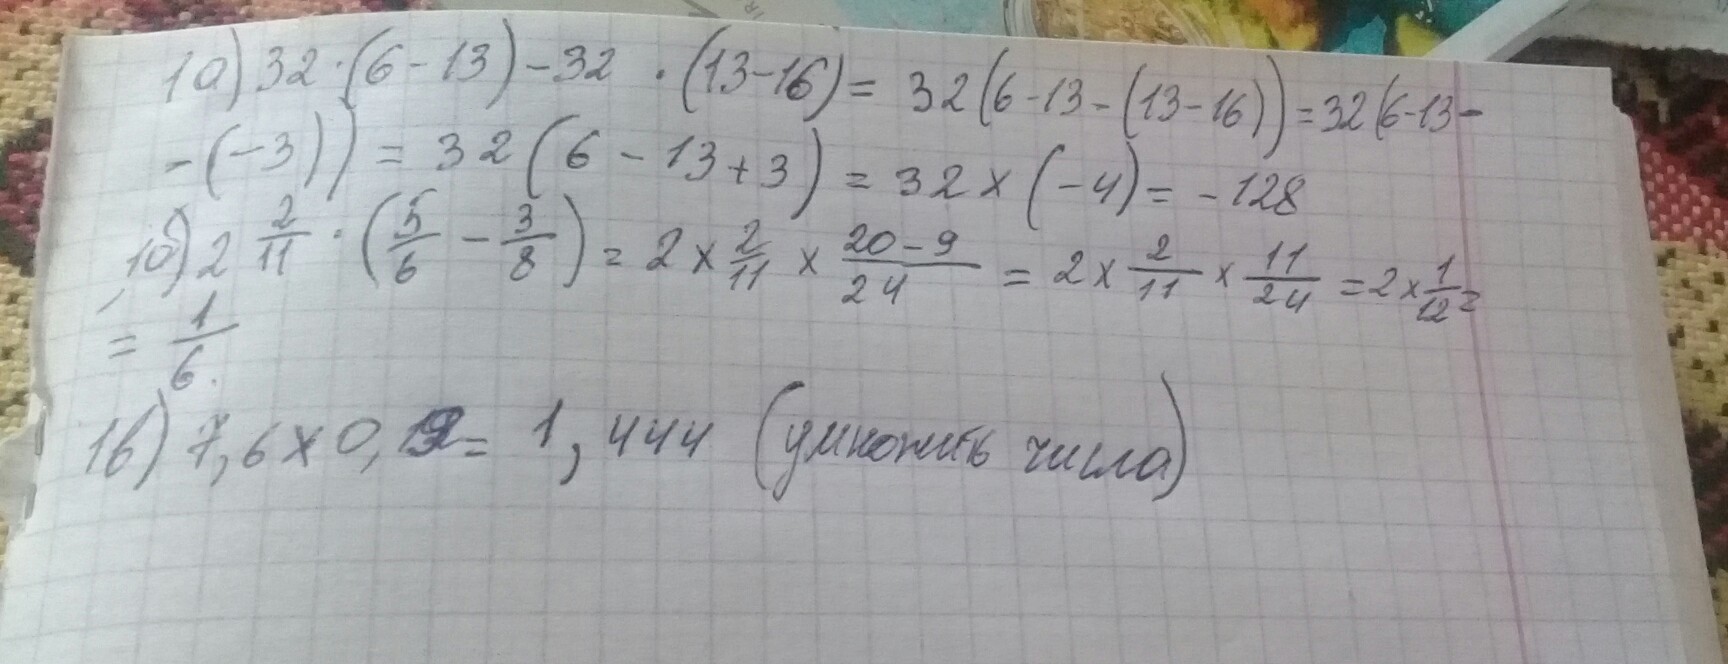 1а) 32·(6-13)-32·(13-16)= 32(6-13-(13-16))=32(6-13-
-(-3))= 32(6-13+3)=32×(-4)=-128
1б) 2 2/11·(5/6-3/8)=2×2/11×(20-9)/24=2×2/11×11/24=2×1/12=
=1/6.
1в) 7,6×0,19=1,444 (умножить числа)